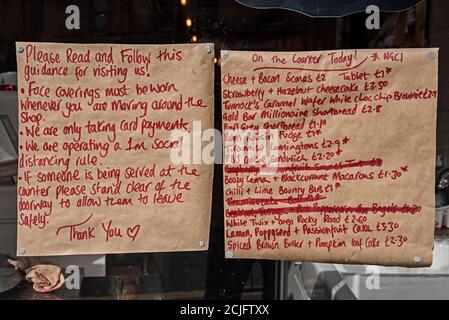 Please Read and Follow this
guidance for visiting us!
• Face coverings must be worn
whenever you are moving around the
Shop.
• We are only taking card payments.
• We are operating a 1m Social
distancing rule.
• If someone is being served at the
counter please stand clear of the
doorway to allow them to leave
Safely.
Thank You
On the Counter Today!
Cheese + Bacon Scones £2 Tablet £1*
Strawberry + Hazelnut cheesecake £3.50
Tunnock's Caramel Wafer White choc chip Brownie
Gold Bar Millionaire Shortbread £2.8
Earl Grey Shortbread £1.10
Fudge £1*
Tiramisu Lamingtons £2.90
Sandwich £2.20*
Boozy Lime + Blackcurrant Macarons £1.30*
Chilli + Lime Bounty Bars £1*
White Twix + Oreo Rocky Road £2.60
Lemon, Poppyseed + Passionfruit Cake £3.30
Spiced Brown Butter + Pumpkin Loaf Cake £2.30
alamy
Image ID: 2CJFTXX
www.alamy.com